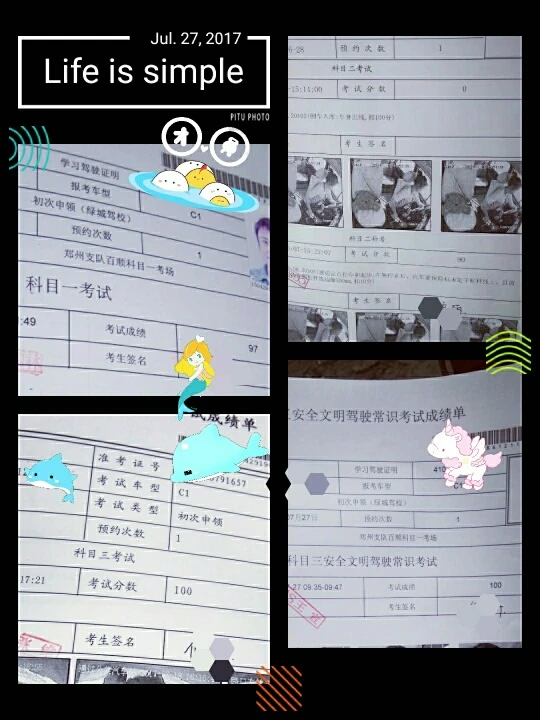 Jul. 27, 2017
Life is simple
PITU PHOTO
学习驾驶证明
报考车型
C1
初次申领（绿城驾校）
预约次数
1
郑州支队百顺科目一考场
科目一考试
:49
考试成绩
97
考生签名
试成绩单
准考证号
0791657
考试车型
C1
考试类型
初次申领
预约次数
1
科目三考试
17:21
考试分数
100
考生签名
6-28
预约次数
1
科目二考试
-15:11:00
考试分数
0
考生签名
考试分数
90
考生签名
三安全文明驾驶常识考试成绩单
学习驾驶证明
410
报考车型
C1
初次申领（绿城驾校）
07月27日
预约次数
1
郑州支队百顺科目一考场
科目三安全文明驾驶常识考试
27 09:35-09:47
考试成绩
100
考生签名